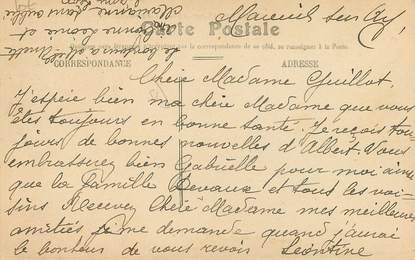 Mareuil sur Ay,
Carte Postale
la correspondance de ce côté, se renseigner à la Poste.
CORRESPONDANCE
ADRESSE
Chère Madame Guillot.
J'espère bien ma chère Madame que vous
êtes toujours en bonne santé. Je reçois tou
jours de bonnes nouvelles d'Albert. Vous
embrasserez bien Gabrielle pour moi ainsi
que la famille Devaux et tous les voi-
sins Recevez Chère Madame mes meilleures
amitiés je me demande quand j'aurai
le bonheur de vous revoir Léontine
Le bonjour à
Léonie et
Marianne sans oublier